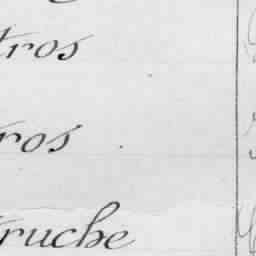 tros
ros
truche